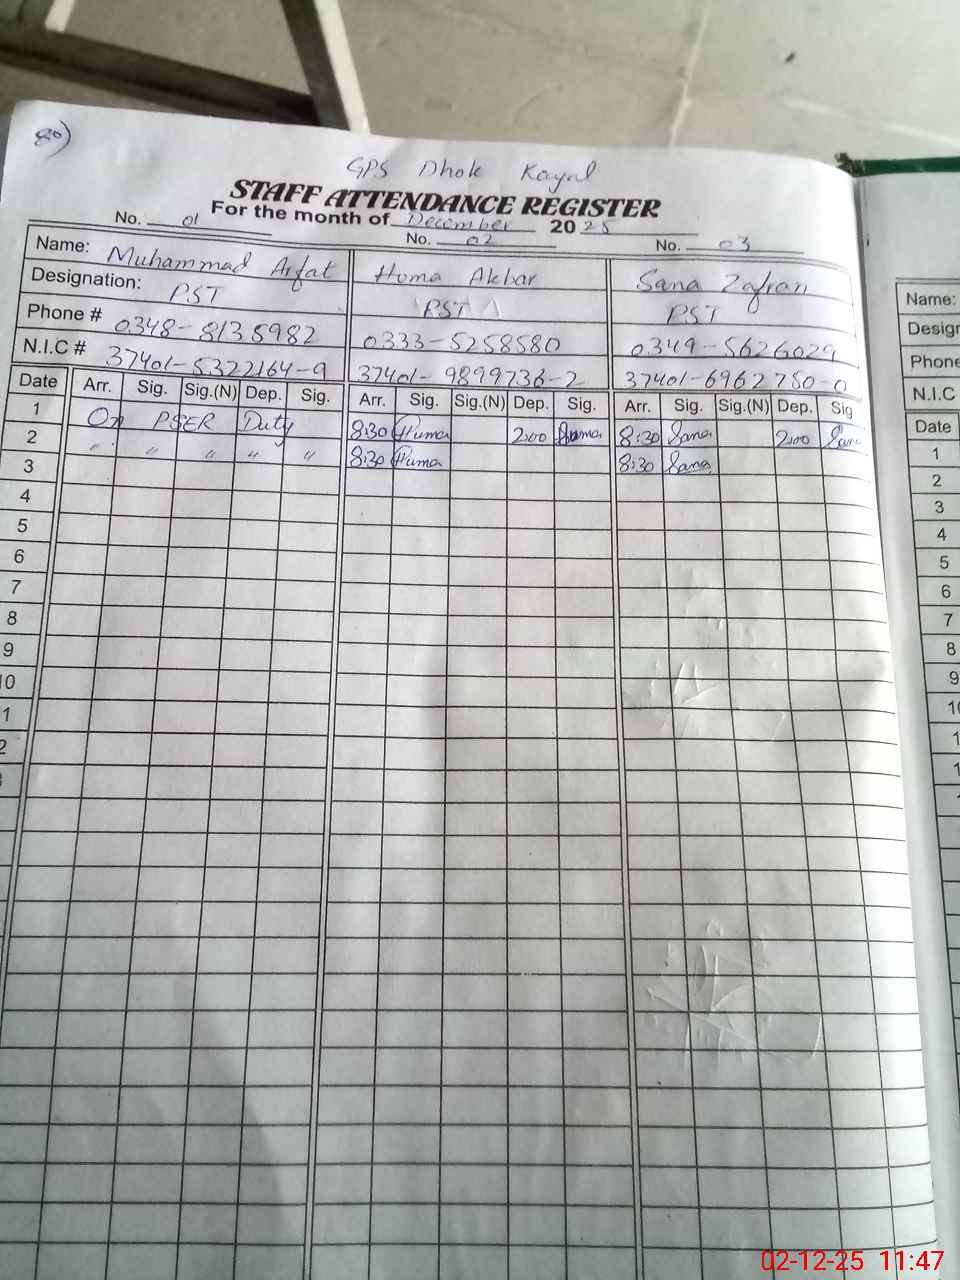 80)
GPS Dhok Kayal
STAFF ATTENDANCE REGISTER
For the month of December 2025
No. 01 No. 02 No. 03
Name: Muhammad Arfat Huma Akbar Sana Zafran
Designation: PST PST PST
Phone # 0348-8135982 0333-5258580 0349-5626029
N.I.C # 37401-5322164-9 37401-9899736-2 37401-6962750-0
Date Arr. Sig. Sig.(N) Dep. Sig. Arr. Sig. Sig.(N) Dep. Sig. Arr. Sig. Sig.(N) Dep. Sig
1 On PSER Duty 8:30 Huma 2:00 Huma 8:30 Sana 2:00 Sana
2 " " " " " 8:30 Huma 8:30 Sana
3
4
5
6
7
8
9
10
1
2
Name:
Design
Phone
N.I.C
Date
1
2
3
4
5
6
7
8
9
10
1
1
02-12-25 11:47